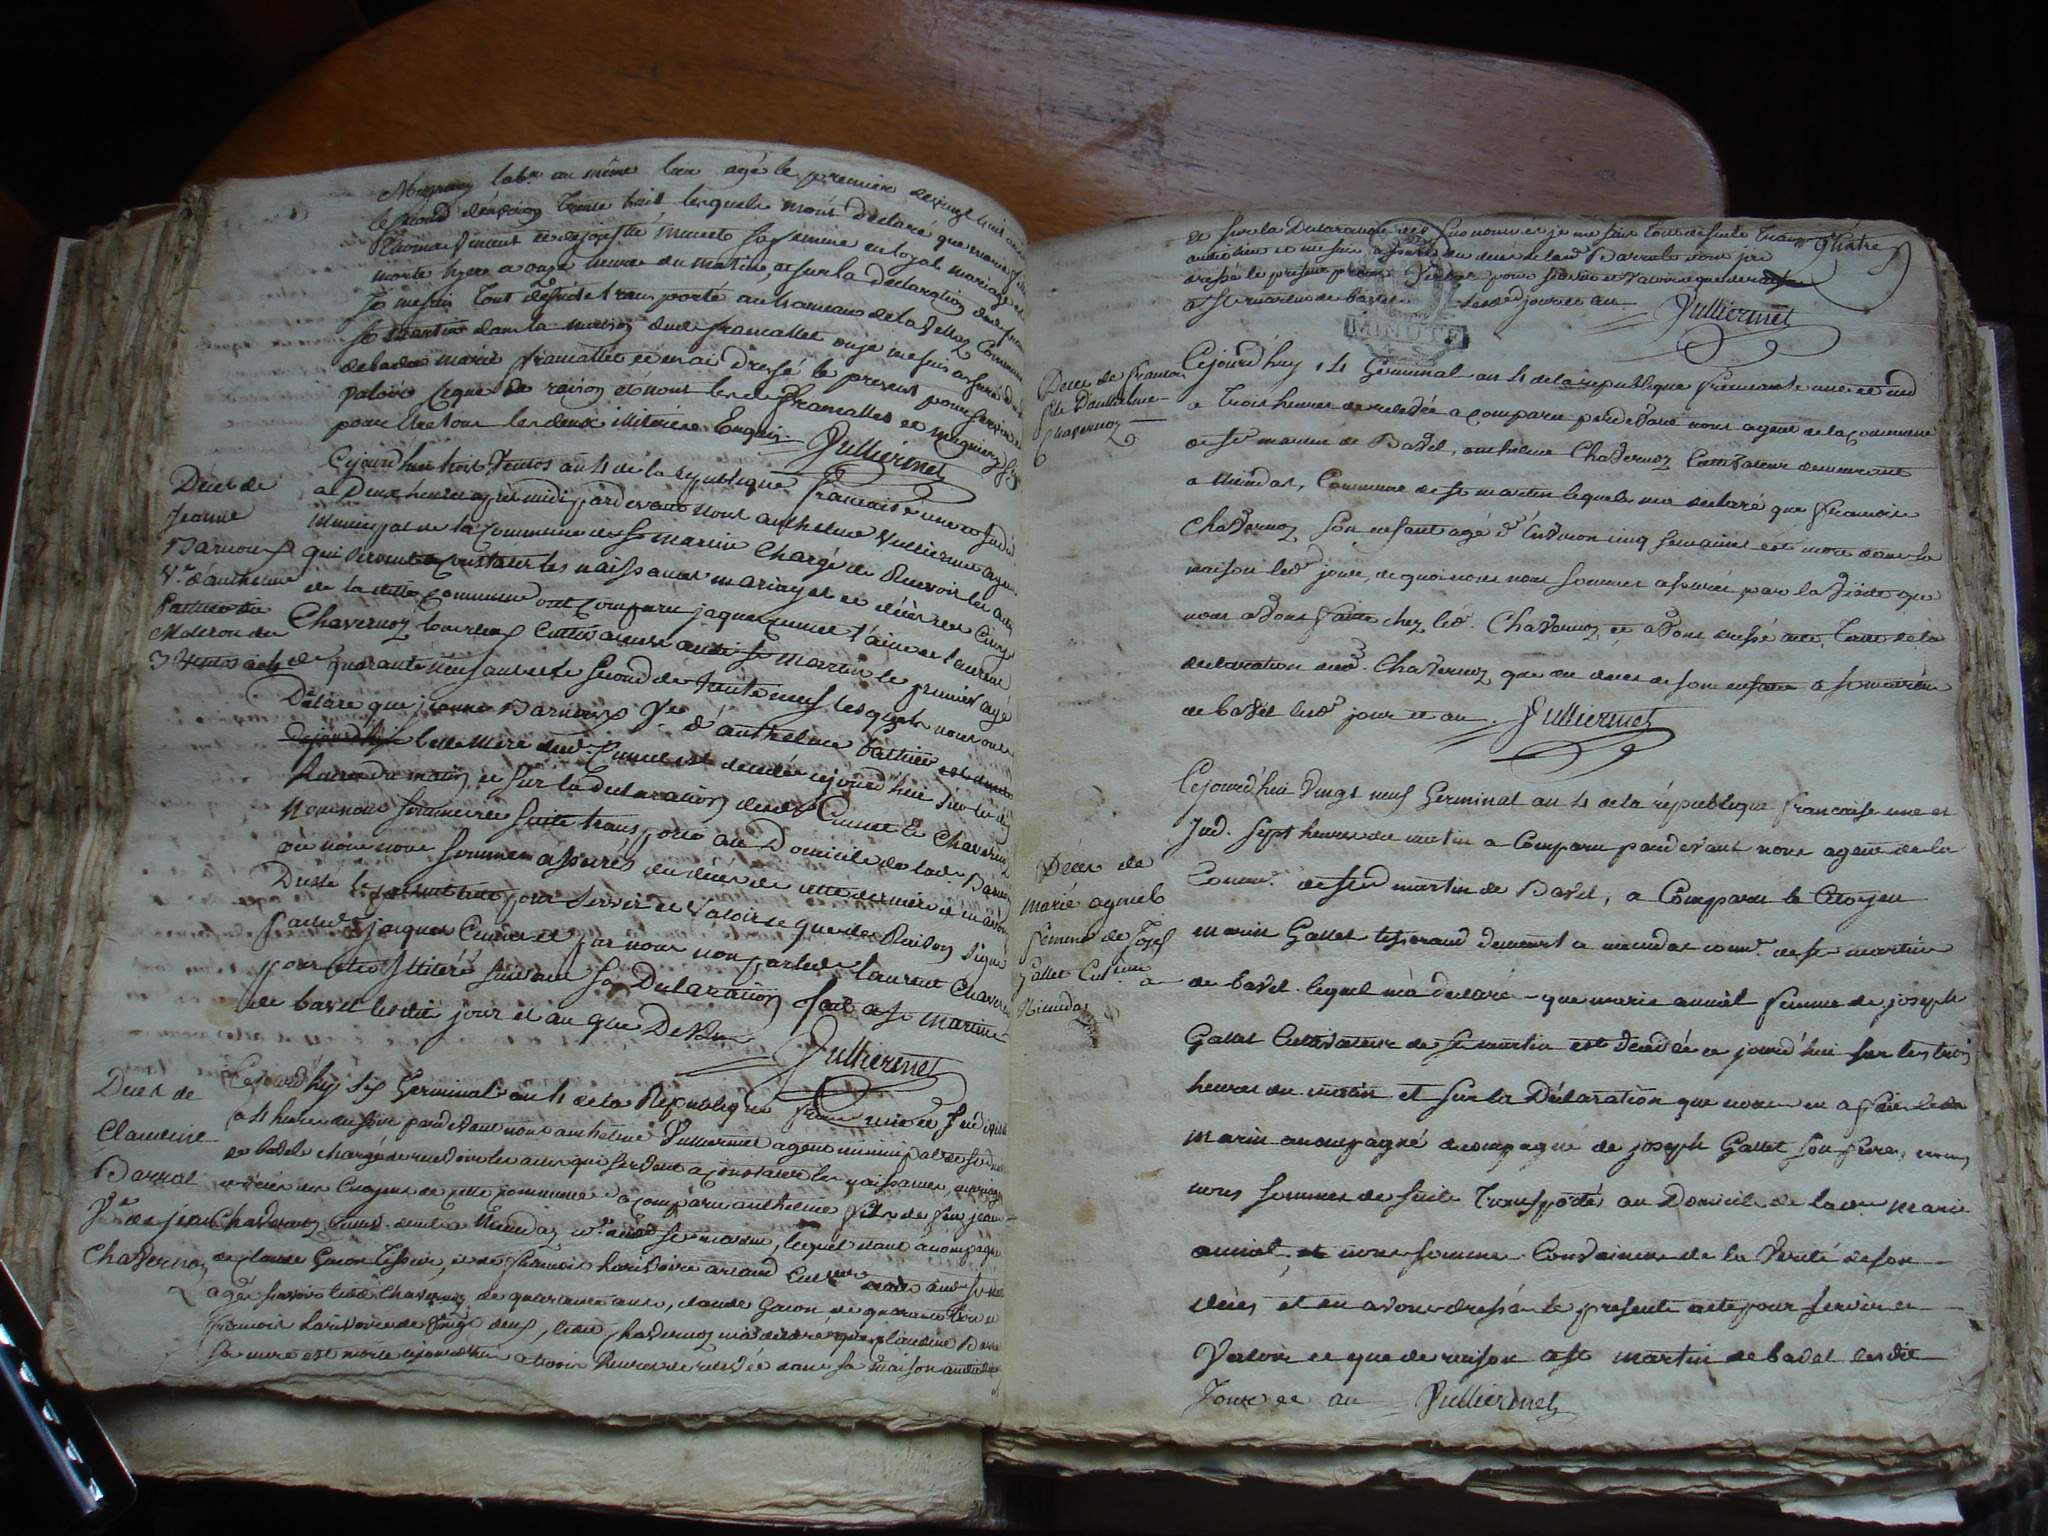 labr. au même lieu agé le premier de vingt huit ans
le second d'environ trente huit lesquels m'ont déclaré que marie
Thomas Vincent et de josephte sa femme en loyal mariage
morte hyere a onze heure du matin, et sur la declaration
Je me suis tout desuite transporté au hameau de la
St martin dans la maison dud. framallet ou je me suis assuré du
de ladte marie framallet et en ai dressé le present pour servir et
valoir ce que de raison et n'ont les dt framallet et
pour etre tous les deux illitéré Enquis
Vulliermet
Décès de
Jeanne
Barnoux
Ve d'anthelme
3 Ventos a 4
Cejourd'hui trois Ventos an 4 de la republique francaise une et Indi
a Deux heures après midi pardevant nous anthelme Vulliermet agent
municipal de la Commune de St martin Chargé de Recevoir les actes
qui servent a constater les naissances mariages et décès des Citoy
de la ditte Commune ont comparu jaques cunet l'ainé et laurent
Chavernoz cultivateurs aud. St Martin le premier agé
de quarante neuf ans et le second de trente neuf lesquels nous ont
Déclaré que jeanne Barnoux Ve d'anthelme
cejourd'hui belle mere dud. Cunet est decedée cejourd'hui sur les dix
heures du matin et sur la declaration desdts Cunet & Chavernoz
Nous nous sommes de suite transporté au Domicile de lade Barnoux
ou nous nous sommes assurés du décès de cette derniere et en avons
Dressé le present acte pour servir et Valoir ce que de Raison signé
par led. jaques Cunet et par nous non par led. laurent Chavernoz
pour etre Illitéré suivant sa Declaration fait a St martin
de bavel lesdit jour et an que Dessus
Vulliermet
Deces de
Claudine
Barral
Ve de jean
Chavernoz
Cejourd'hy six Germinal an 4 de la Republique franc une et Indivisible
a 4 heures du soir pardevant nous anthelme Vulliermet agent municipal de St martin
de badel chargé de recevoir les actes qui servent a constater les naissances, mariages
et décès des Citoyens de cette commune a comparu anthelme fils de feu jean
Chavernoz cultiv. demt a Meindas, lequel etant acompagné
de claude Gacon Tessier, et de francois harivoire artaud
agés savoir led. Chavernoz de quarante ans, claude Gacon de quarante trois
francois harivoire de vingt deux, ledit Chavernoz m'a declaré que claudine Barral
sa mere est morte cejourdhui a trois heures de relevée dans sa maison
et sur la Declaration des susnommés je me suis tout de suite transp
quatre
audit lieu et me suis assuré du décès de lad. Barral dont j'ai
dressé le present proces verbal pour servir et valoir ce que de raison
a St martin de bavel lesdts jour et an
Vulliermet
MINUTE
Deces de francois
fils D'anthelme
Chavernoz
Cejourd'huy 14 Germinal an 4 de la republique francaise une et ind
a trois heures de relevée a comparu pardevant nous agent de la Commune
de St martin de Bavel, anthelme Chavernoz Cultivateur demeurant
a Meindas, Commune de St martin lequel ma declaré que francois
Chavernoz son enfant agé d'environ cinq semaines est mort dans sa
maison led. jour, de quoi nous nous sommes assurés par la visite que
nous avons faitte chez led. Chavernoz, et avons dressé acte, tant de la
declaration dud. Chavernoz que du deces de son enfant a St martin
de bavel lesdt jour et an
Vulliermet
Décès de
marie agniel
femme de Josef
Gallet Cultivr a
Meindas
Cejourd'hui vingt neuf Germinal an 4 de la république francaise une et
Ind. sept heures du matin a Comparu pardevant nous agent de la
Commue de St martin de Bavel, a Comparu le Citoyen
marin Gallet tisserand demeurt a meindas comue de St martin
de bavel lequel m'a declaré que marie anniel femme de joseph
Gallet Cultivateur de St martin est décédée ce jourd'hui sur les trois
heures du matin et sur la Déclaration que nous en a fait led
marin accompagné de joseph Gallet son frere, nous
nous sommes de suite transportés au Domicile de ladte marie
anniel et nous sommes Convaincus de la Verité de son
décès et en avons dressé le present acte pour servir et
Valoir ce que de raison a St martin de bavel lesdit
Jour et an
Vulliermet